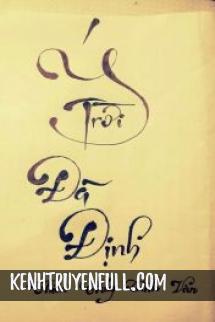 Ý
Trời
Đã
Định
KENHTRUYENFULL.COM
Vân